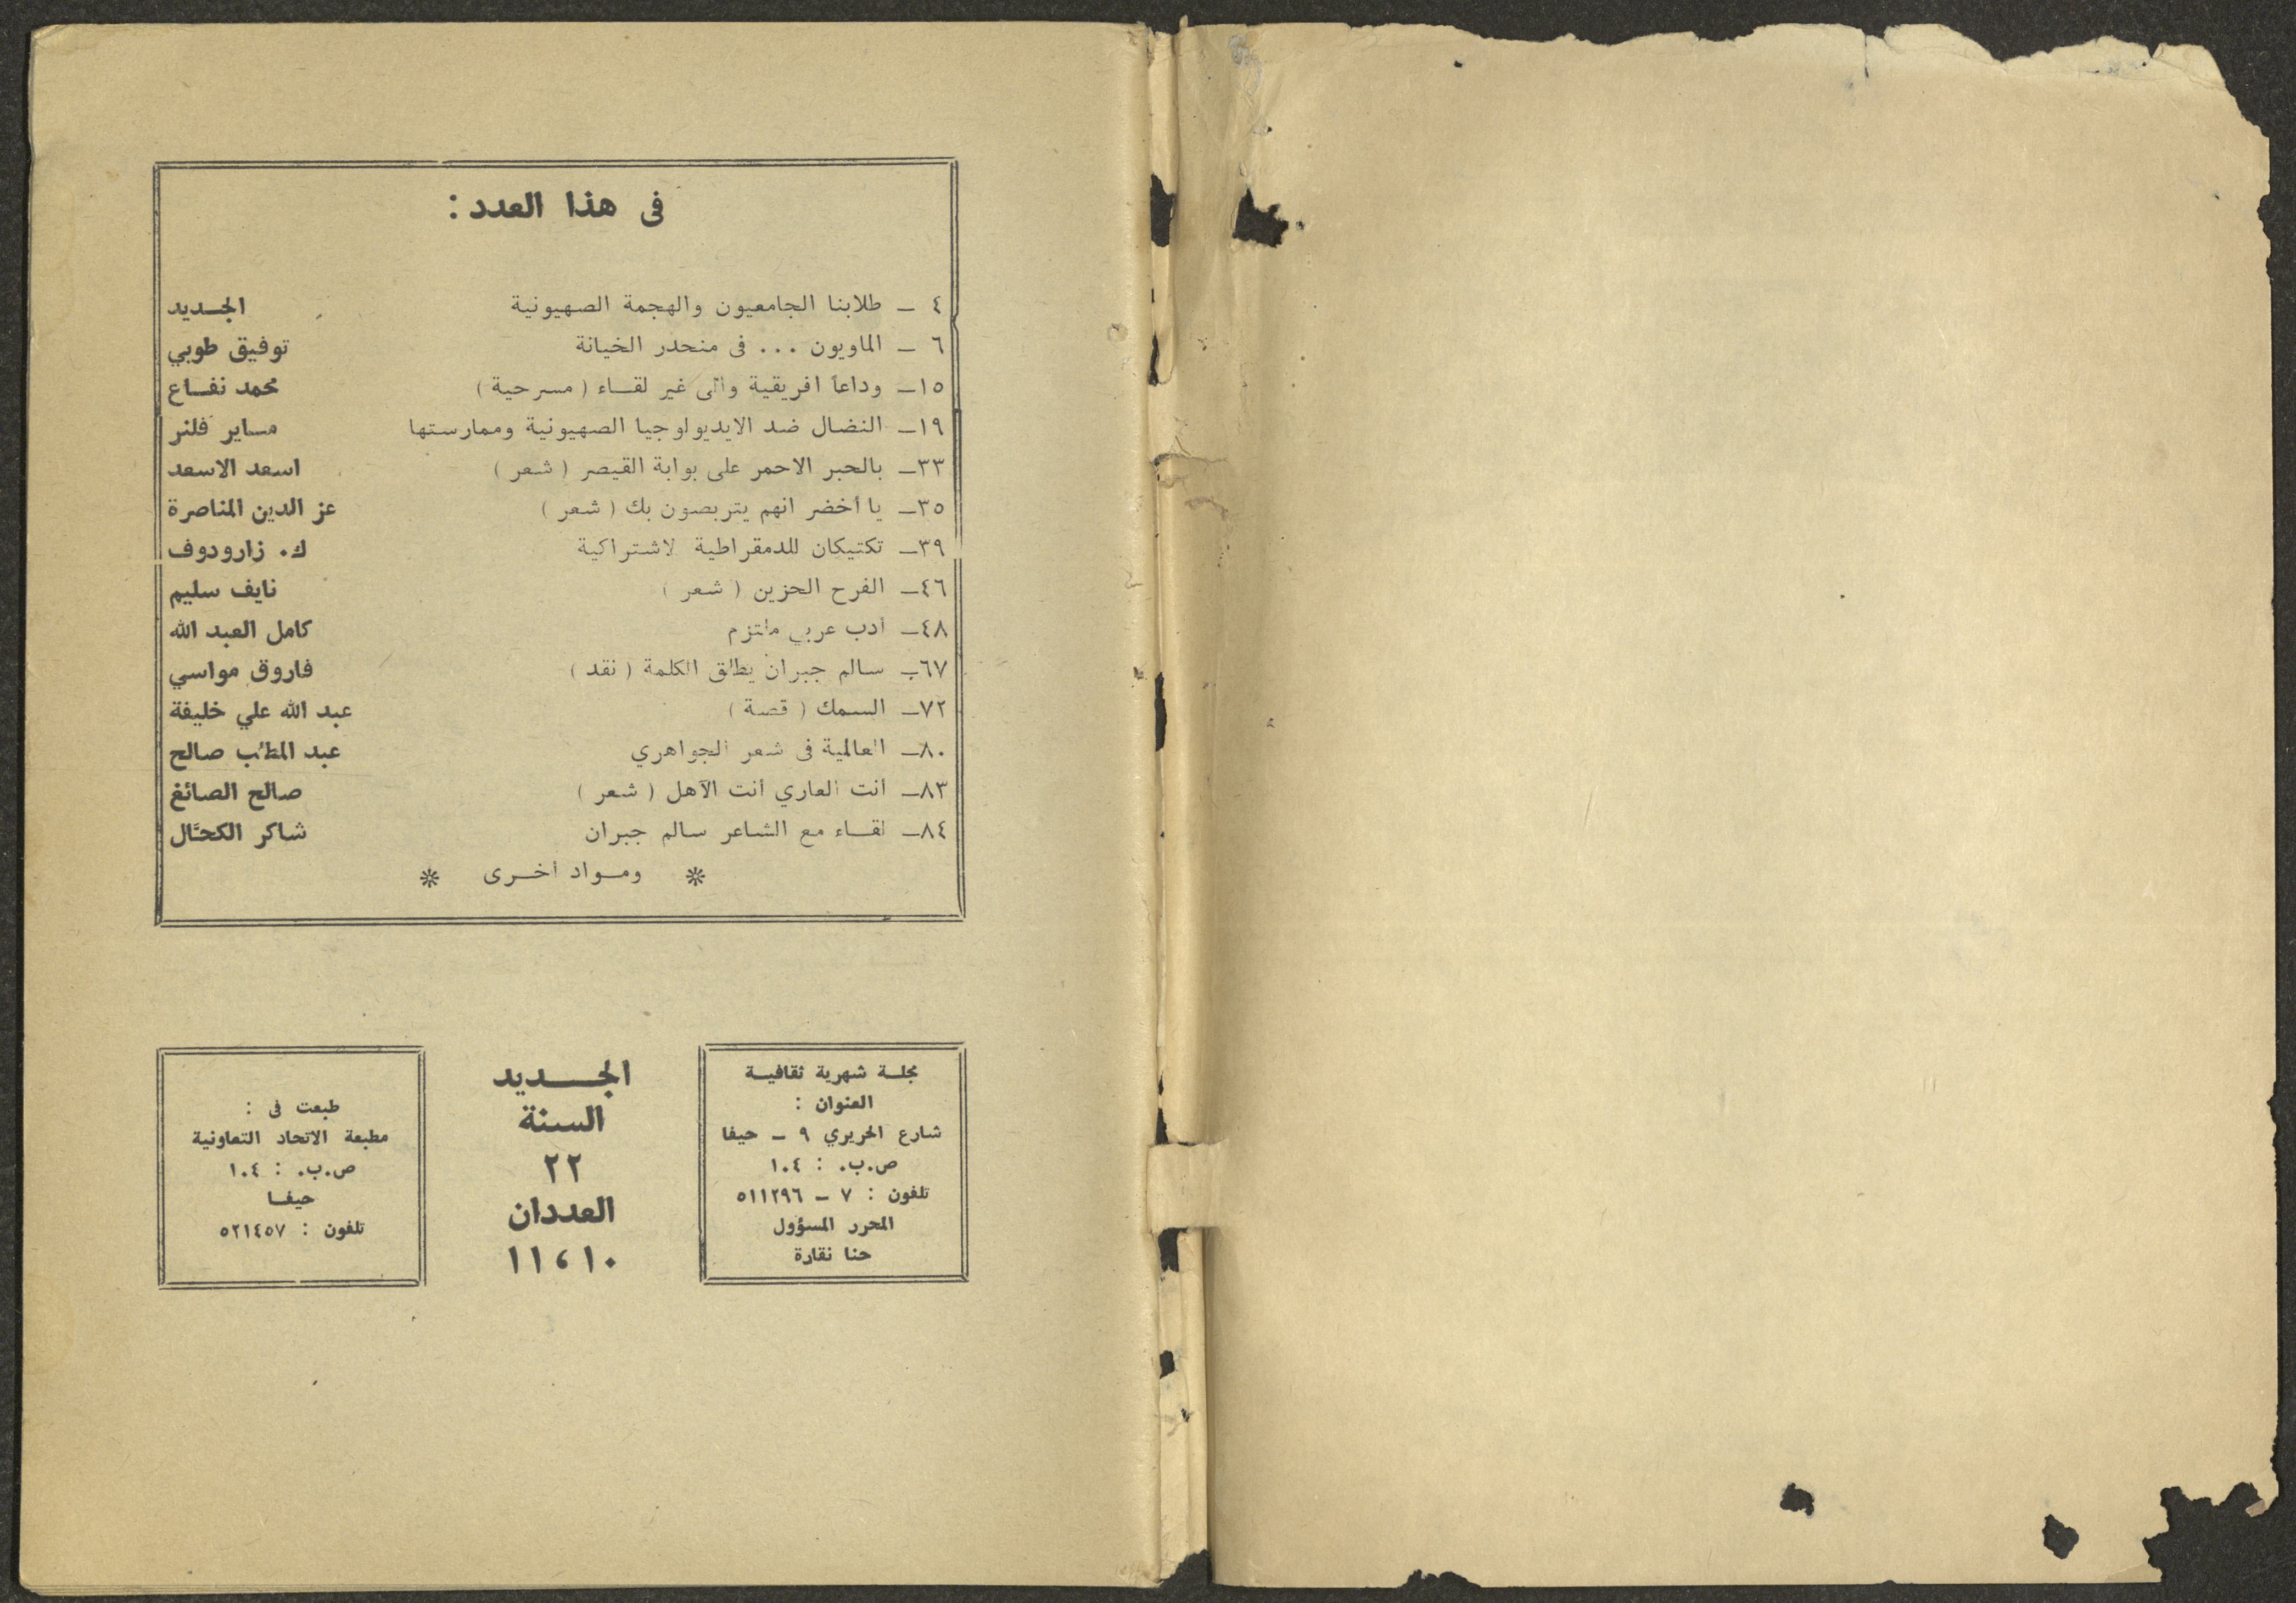 فى هذا العدد :
٤ ـ طلابنا الجامعيون والهجمة الصهيونية الجـديد
٦ ـ الماويون ... فى منحدر الخيانة توفيق طوبي
١٥ـ وداعاً افريقية والى غير لقـاء ( مسرحية ) محمد نفـاع
١٩ـ النضال ضد الايديولوجيا الصهيونية وممارستها مـاير فلنر
٣٣ـ بالحبر الاحمر على بوابة القيصر ( شعر ) اسعد الاسعد
٣٥ـ يا أخضر انهم يتربصون بك ( شعر ) عز الدين المناصرة
٣٩ـ تكتيكان للدمقراطية لاشتراكية ك. زارودوف
٤٦ـ الفرح الحزين ( شعر ) نايف سليم
٤٨ـ أدب عربي ملتزم كامل العبد الله
٦٧ـ سالم جبران يطلق الكلمة ( نقد ) فاروق مواسي
٧٢ـ السمك ( قصة ) عبد الله علي خليفة
٨٠ـ العالمية فى شعر الجواهري عبد المطلب صالح
٨٣ـ أنت العاري أنت الآهل ( شعر ) صالح الصائغ
٨٤ـ لقـاء مع الشاعر سالم جبران شاكر الكحَّال
※ ومـواد أخـرى ※
مجلـة شهرية ثقافيـة
العنوان :
شارع الحريري ٩ ـ حيفا
ص.ب. : ١٠٤
تلفون : ٧ ـ ٥١١٢٩٦
المحرر المسؤول
حنا نقارة
الجـــديد
السنة
٢٢
العددان
١٠، ١١
طبعت فى :
مطبعة الاتحاد التعاونية
ص.ب. : ١٠٤
حيفـا
تلفون : ٥٢١٤٥٧